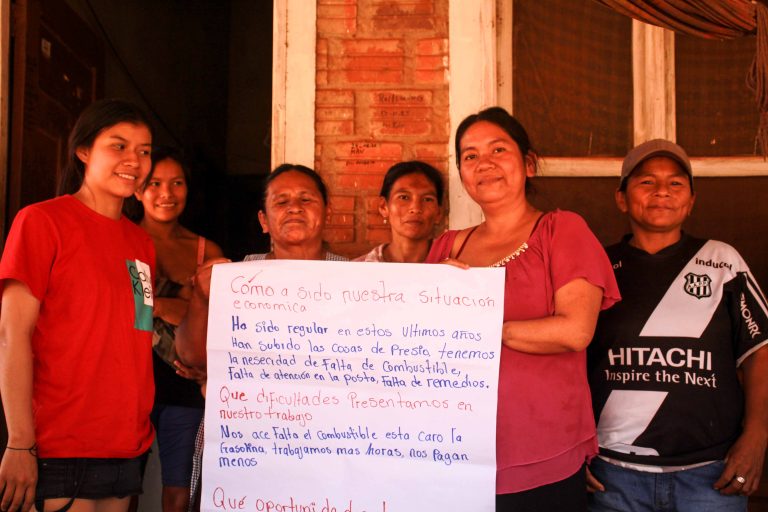 Cómo a sido nuestra situación
economica
Ha sido regular en estos ultimos años
Han subido las cosas de Presio, tenemos
la nesecidad de Falta de Combustible,
Falta de atención en la posta, Falta de remedios.
Que dificultades Presentamos en
nuestro trabajo
Nos ace Falta el combustible esta caro la
Gasolina, trabajamos mas horas, nos pagan
menos
inducol
HITACHI
Inspire the Next